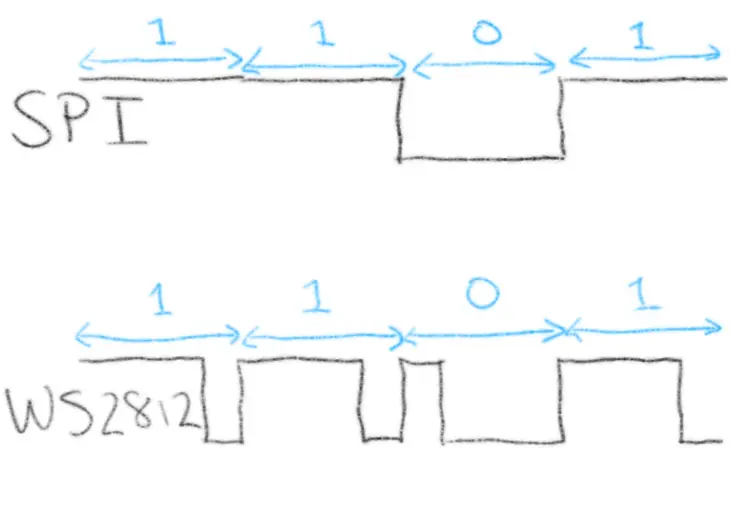 1 1 0 1
SPI
1 1 0 1
WS2812